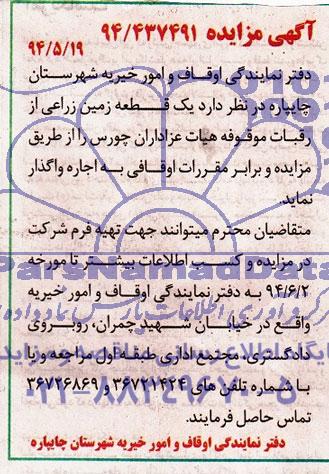 آگهی مزایده ۹۴/۴۳۷۴۹۱
۹۴/۵/۱۹
دفتر نمایندگی اوقاف و امور خیریه شهرستان
چایپاره در نظر دارد یک قطعه زمین زراعی از
رقبات موقوفه هیات عزاداران چورس را از طریق
مزایده و برابر مقررات اوقافی به اجاره واگذار
نماید.
متقاضیان محترم میتوانند جهت تهیه فرم شرکت
در مزایده و کسب اطلاعات بیشتر تا مورخه
۹۴/۶/۲ به دفتر نمایندگی اوقاف و امور خیریه
واقع در خیابان شهید چمران، روبروی
دادگستری، مجتمع اداری طبقه اول مراجعه و یا
با شماره تلفن های ۳۶۷۲۱۴۲۴ و ۳۶۷۲۶۸۶۹
تماس حاصل فرمایند.
دفتر نمایندگی اوقاف و امور خیریه شهرستان چایپاره
ParsNamadData
۰۲۱-۸۸۳۴۹۶۷۰-۵